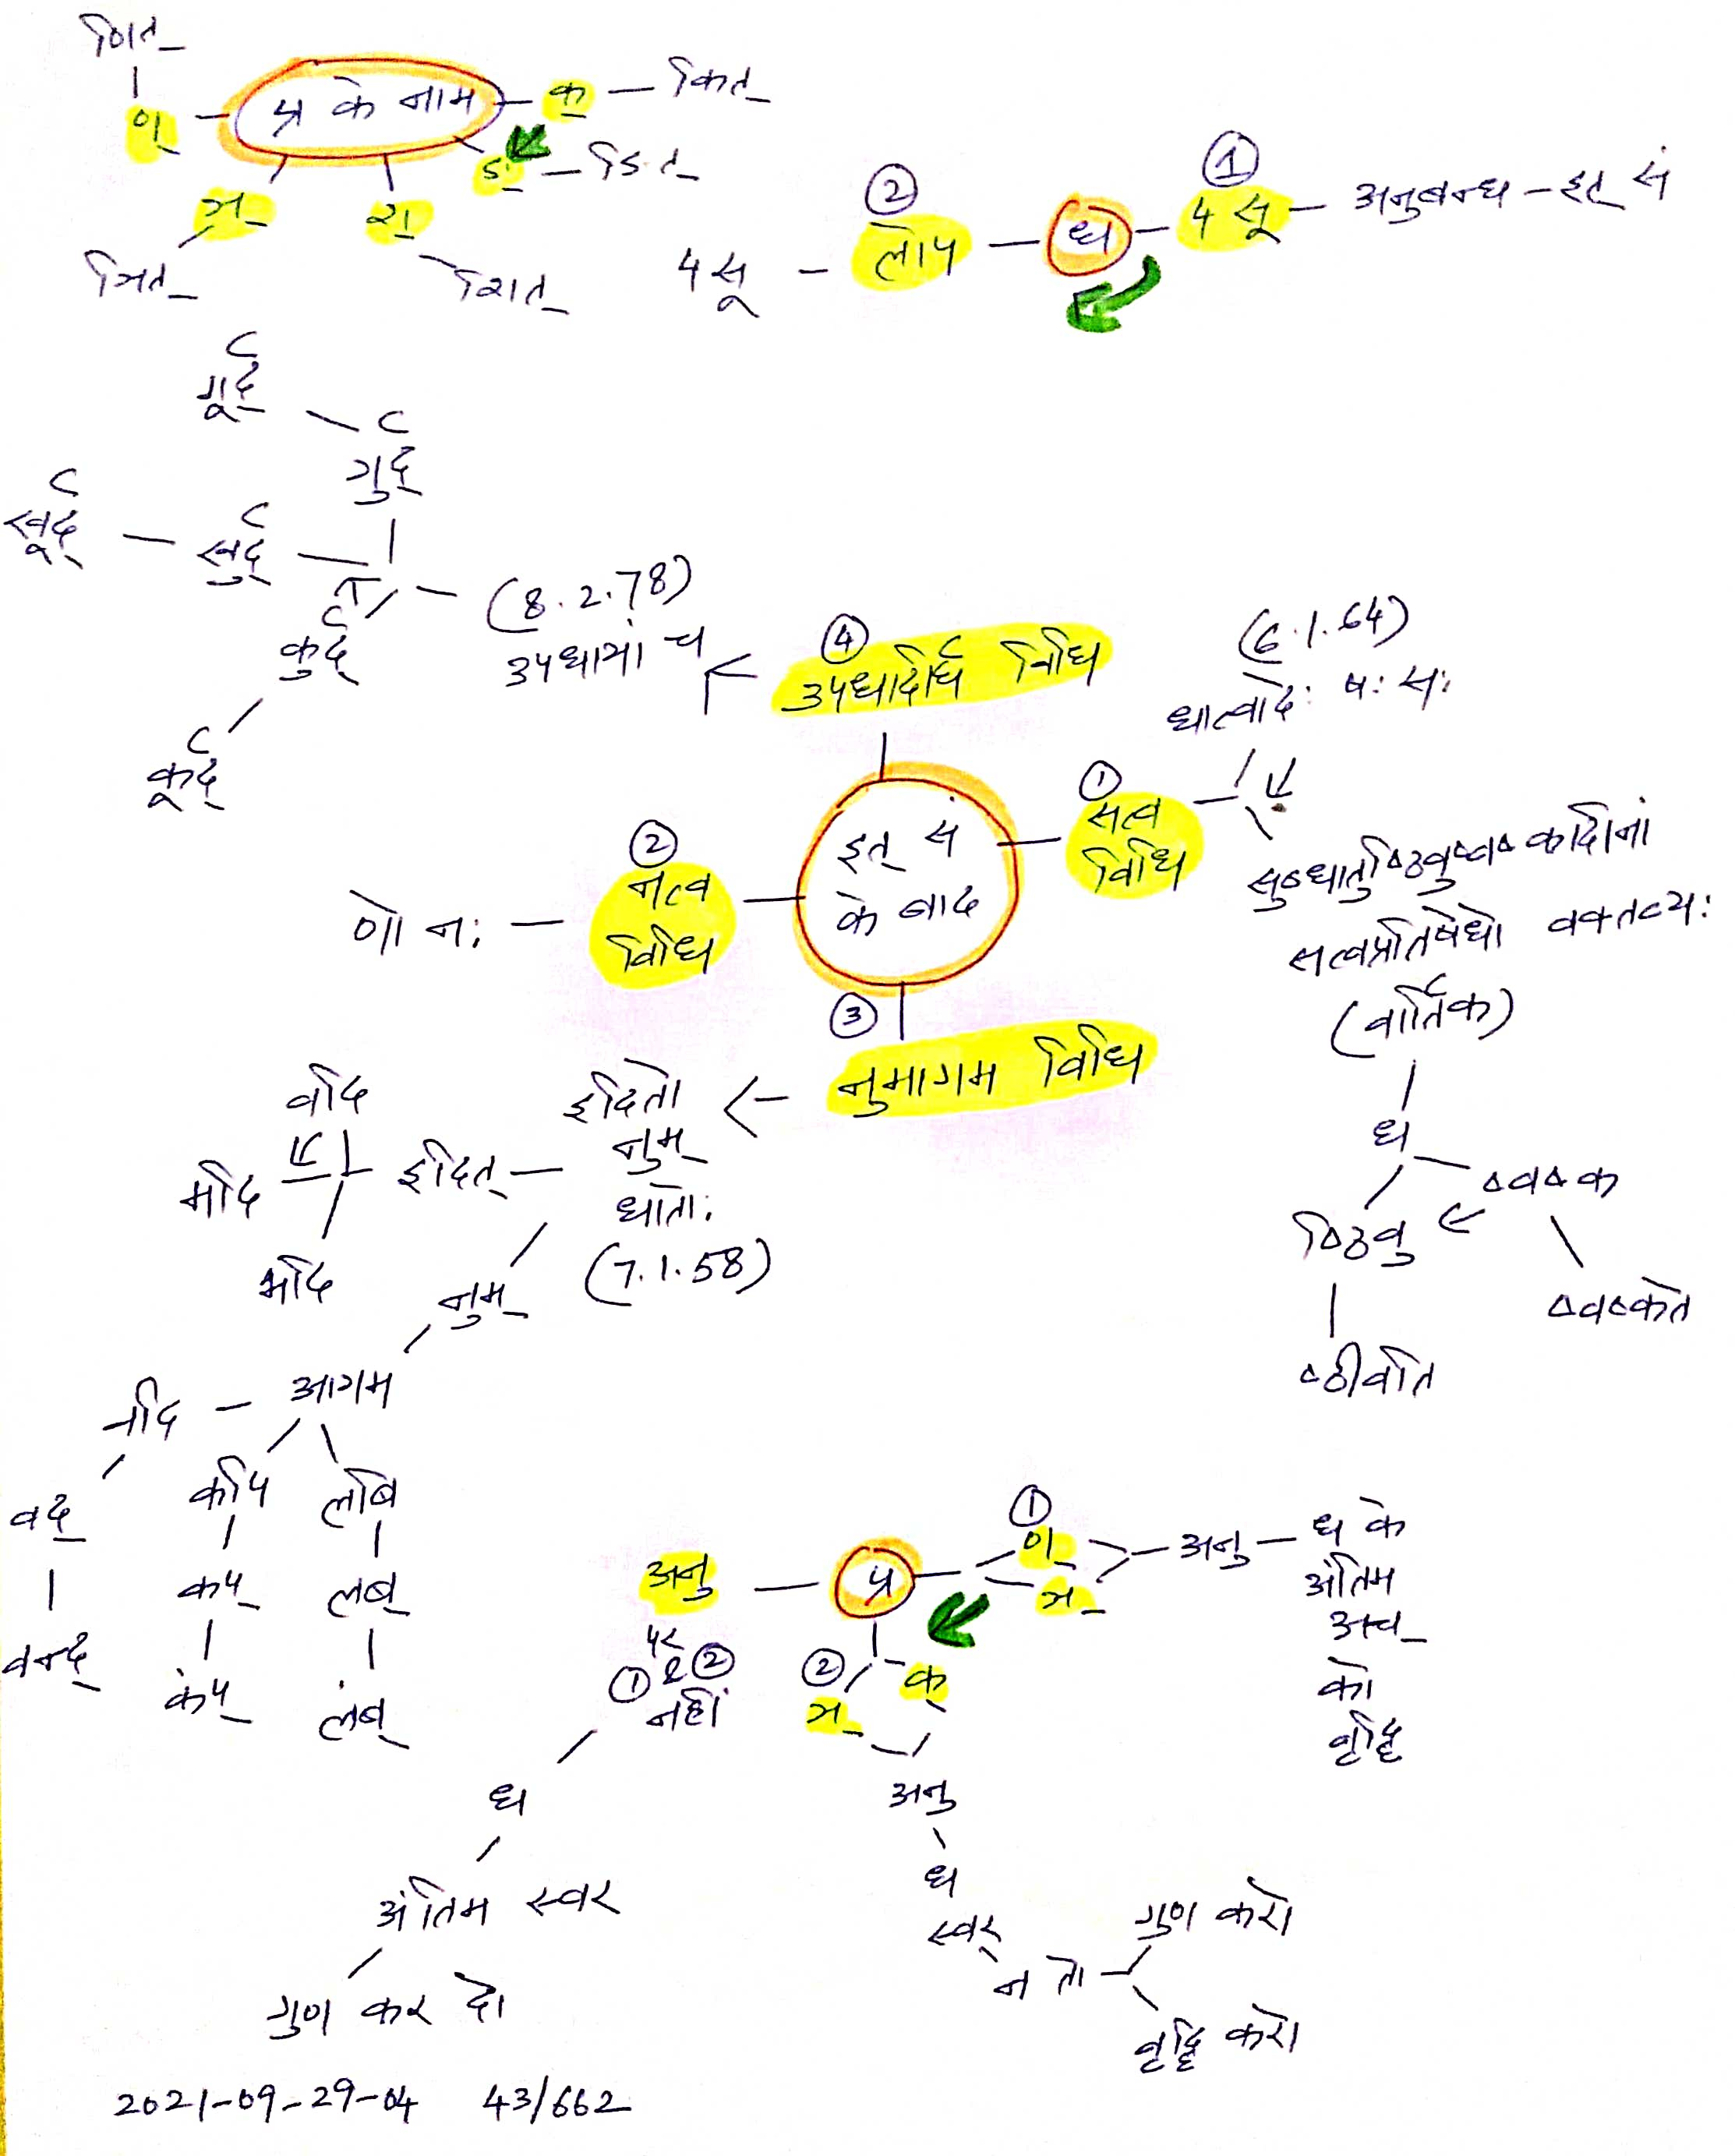 णित्
ण् प्र के नाम क् — कित्
ङ् — ङित्
ञ् श्
ञित् शित्
① 
② 4 सू — अनुबन्ध — इत् सं
4 सू — लोप — ध — 
गूर्द्
गुर्द्
खूर्द् — खुर्द्
कुर्द्
कूर्द्
(8.2.78)
उपधायां च
④
उपधादीर्घ विधि
(6.1.64)
धात्वादेः षः सः
①
सत्व
विधि
इत् सं
के बाद
②
नत्व
विधि
णो नः
सुब्धातुष्ठिवुष्वष्कादीनां
सत्वप्रतिषेधो वक्तव्यः
(वार्तिक)
ध
ष्वष्क
ष्ठिवु
ष्वष्कते
ष्ठीवति
③
नुमागम विधि
इदितो
नुम्
धातोः
(7.1.58)
वदि
इदित्
मदि
भदि
नुम्
आगम
वदि
कपि लबि
वद् कप् लब्
वन्द् कंप् लंब्
①
अनु — प्र ण् — अनु — ध के
ञ्
अंतिम
अच्
को
वृद्धि
पर
① & ②
नहीं
② क्
अनु
ध
अंतिम स्वर
गुण कर दो
ध
स्वर
न तो
गुण करो
वृद्धि करो
2021-09-29-04 43/662